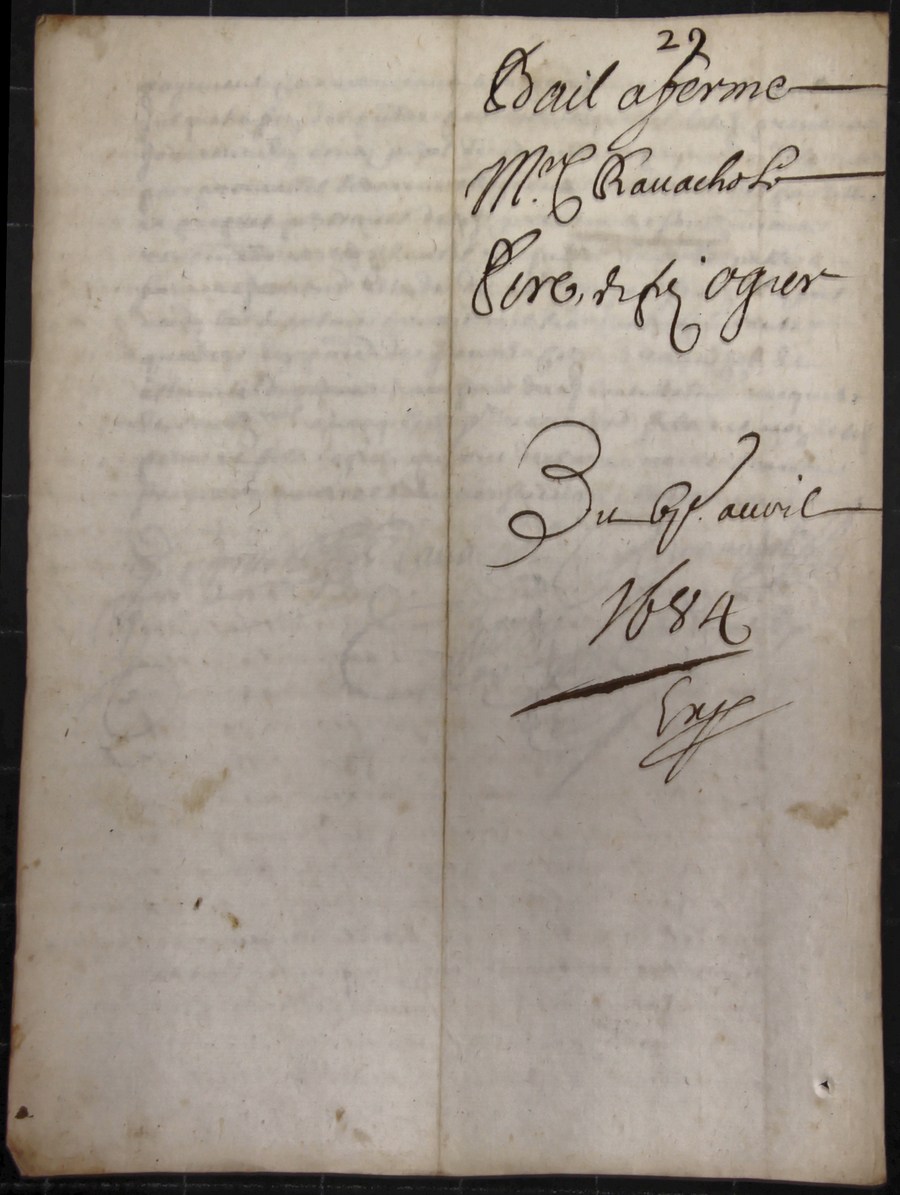 29
Bail a ferme
Mr. Rauachol
Pere, de fiz ogier
Du 6e. auril
1684